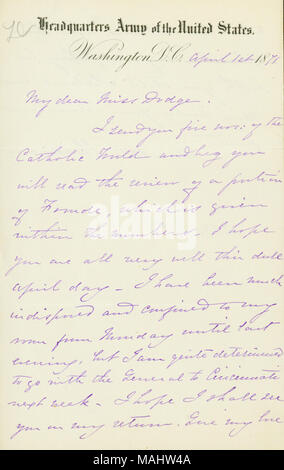 Headquarters Army of the United States.
Washington D.C. April 1st 1871
My dear Miss Dodge.
I send you five nos: of the
Catholic World and beg you
will read the review of a portion
of Froude, which is given
within the numbers. I hope
you are all very well this dull
April day - I have been much
indisposed and confined to my
room from Monday until last
evening, but I am quite determined
to go with the General to Cincinnati
next week - I hope I shall see
you on my return. Give my love
alamy
Image ID: MAHW4A
www.alamy.com